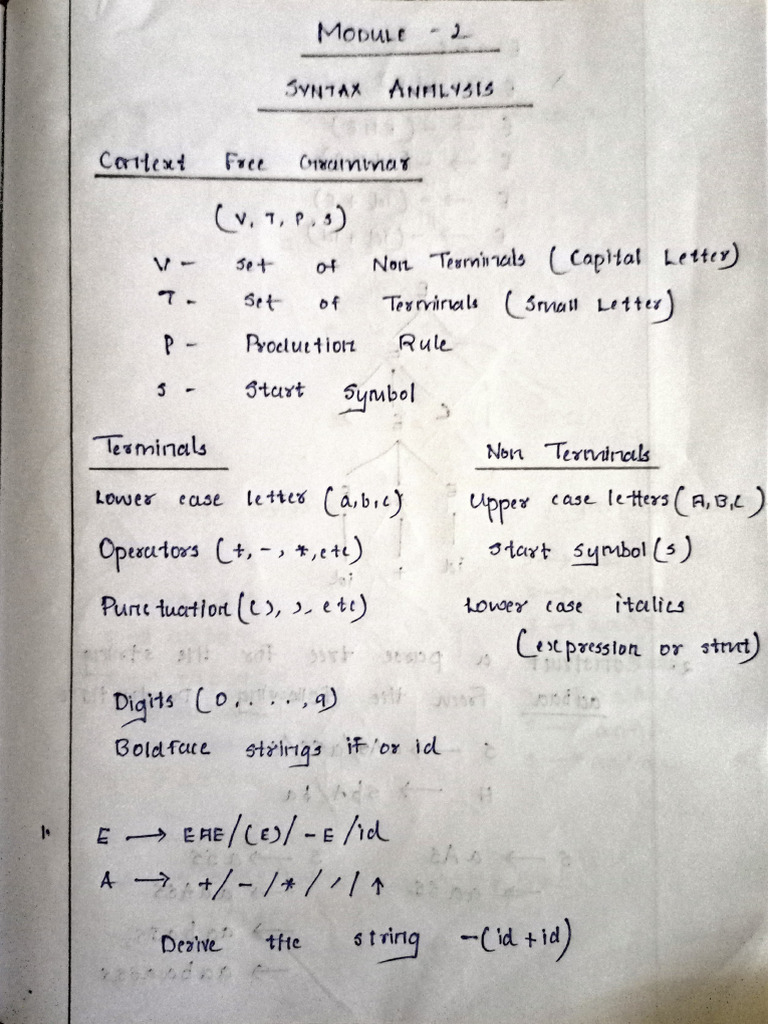 MODULE - 2
SYNTAX ANALYSIS
Context Free Grammar
(V, T, P, S)
V - set of Non Terminals (Capital Letter)
T - Set of Terminals (Small Letter)
P - Production Rule
S - Start Symbol
Terminals
Non Terminals
Lower case letter (a,b,c)
Upper case letters (A,B,C)
Operators (+, -, *, etc)
Start symbol (S)
Punctuation ((), ,, etc)
Lower case italics
(expression or stmt)
Digits (0, . . . , 9)
Boldface strings if or id
1. E → EAE/(E)/ -E /id
A → +/ - / * / / / ↑
Derive the string -(id + id)